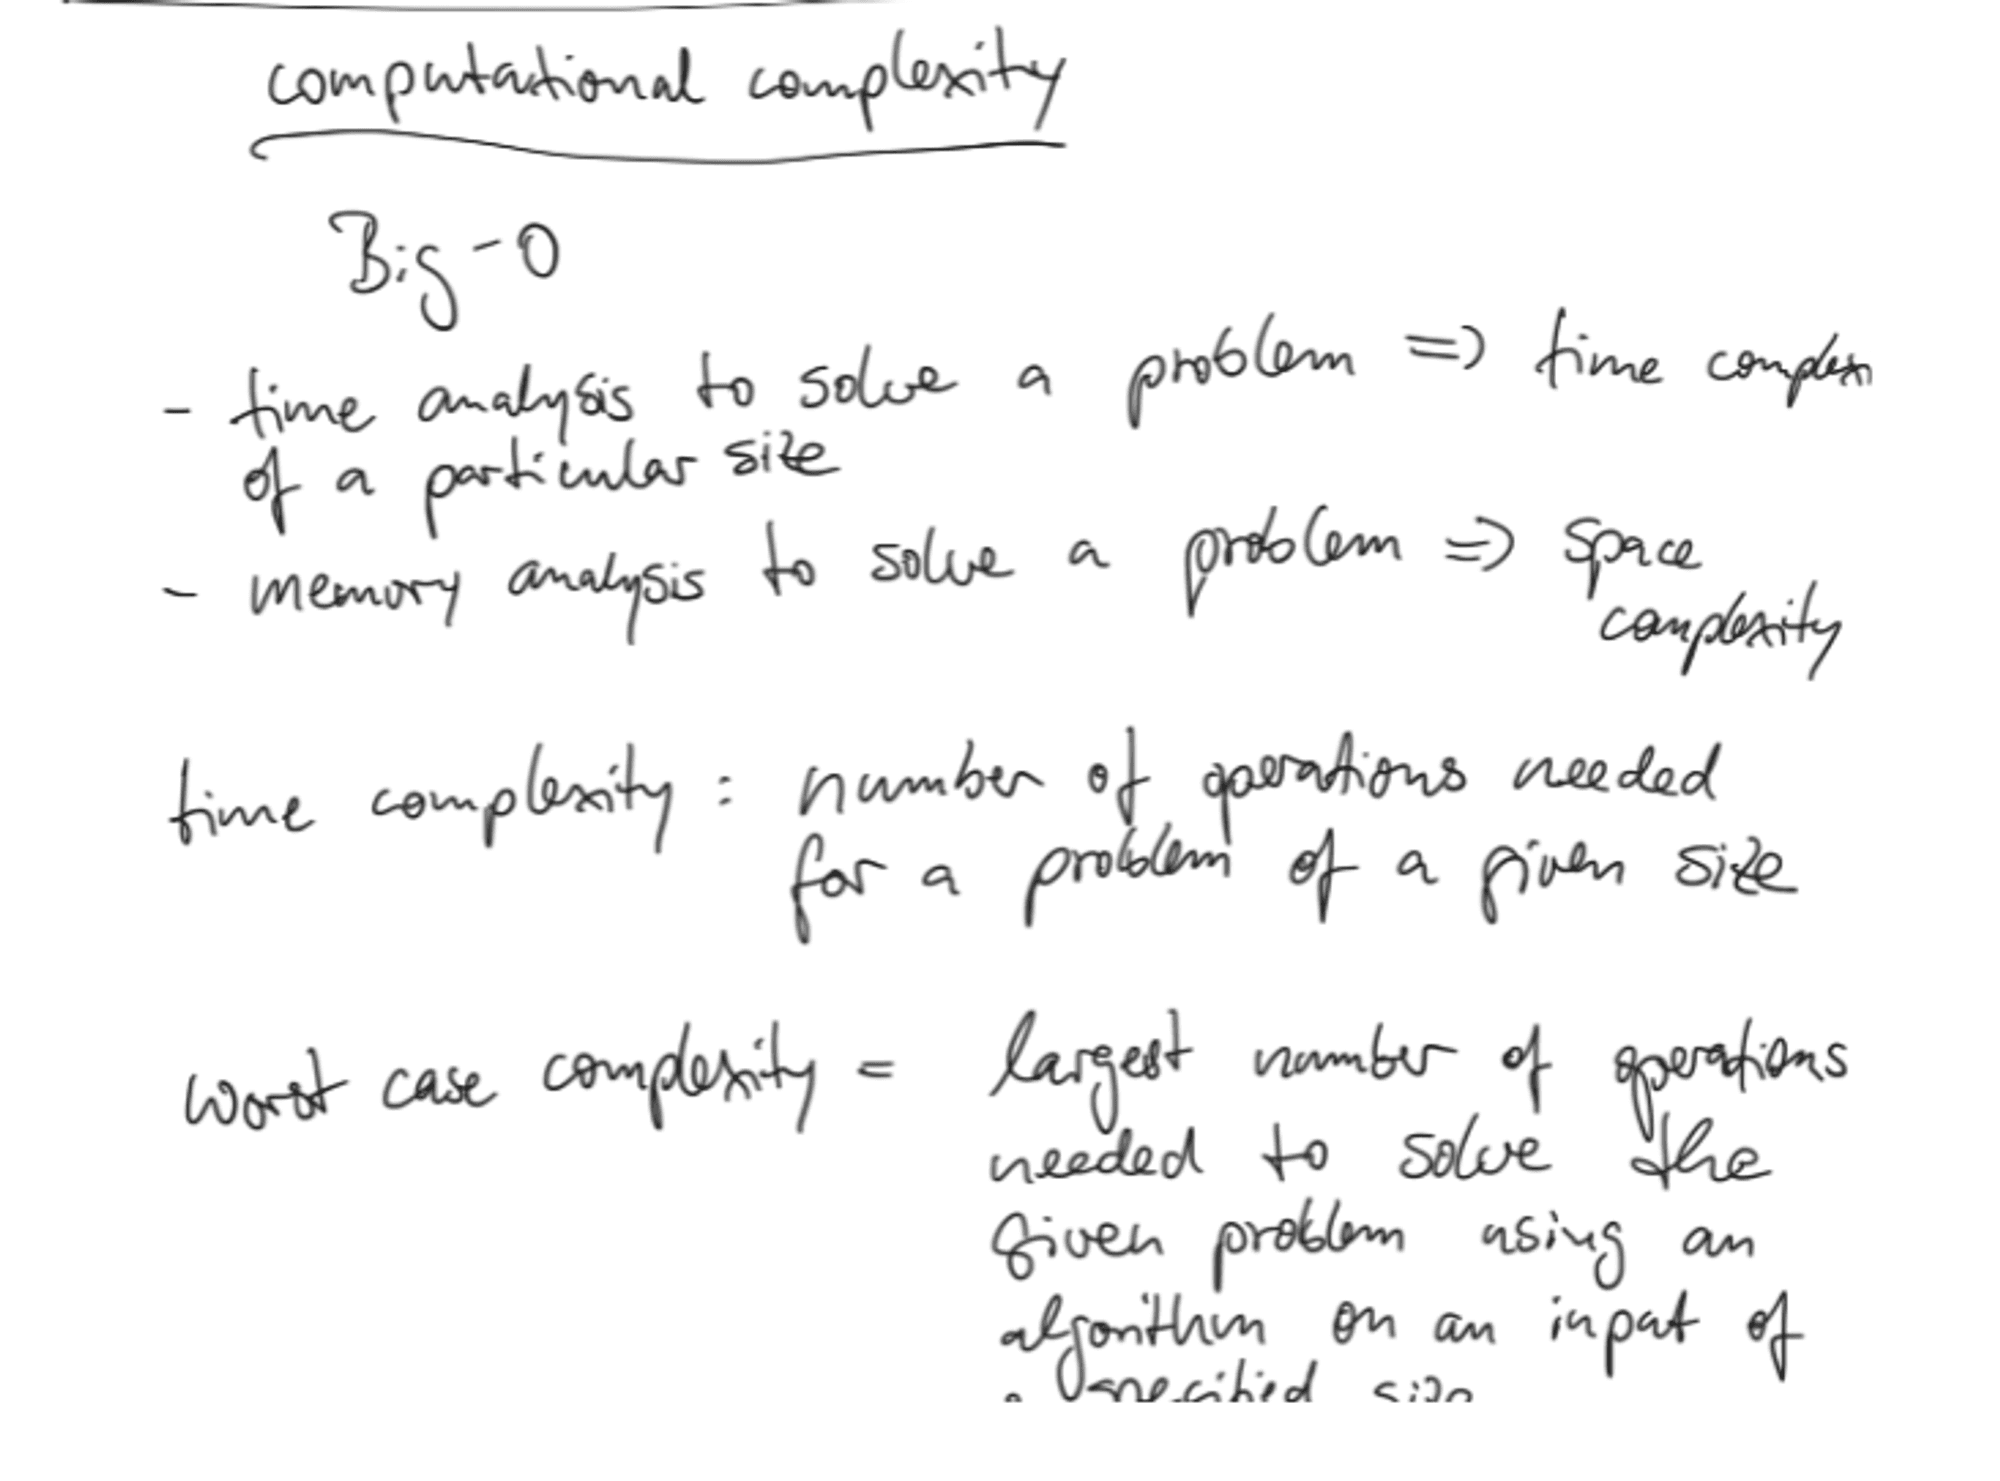 computational complexity
Big-O
- time analysis to solve a problem => time complex
of a particular size
- memory analysis to solve a problem => space
complexity
time complexity : number of operations needed
for a problem of a given size
worst case complexity = largest number of operations
needed to solve the
given problem using an
algorithm on an input of
a specified size